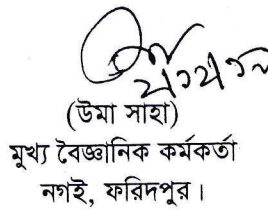 (উমা সাহা)
মুখ্য বৈজ্ঞানিক কর্মকর্তা
নগই, ফরিদপুর।